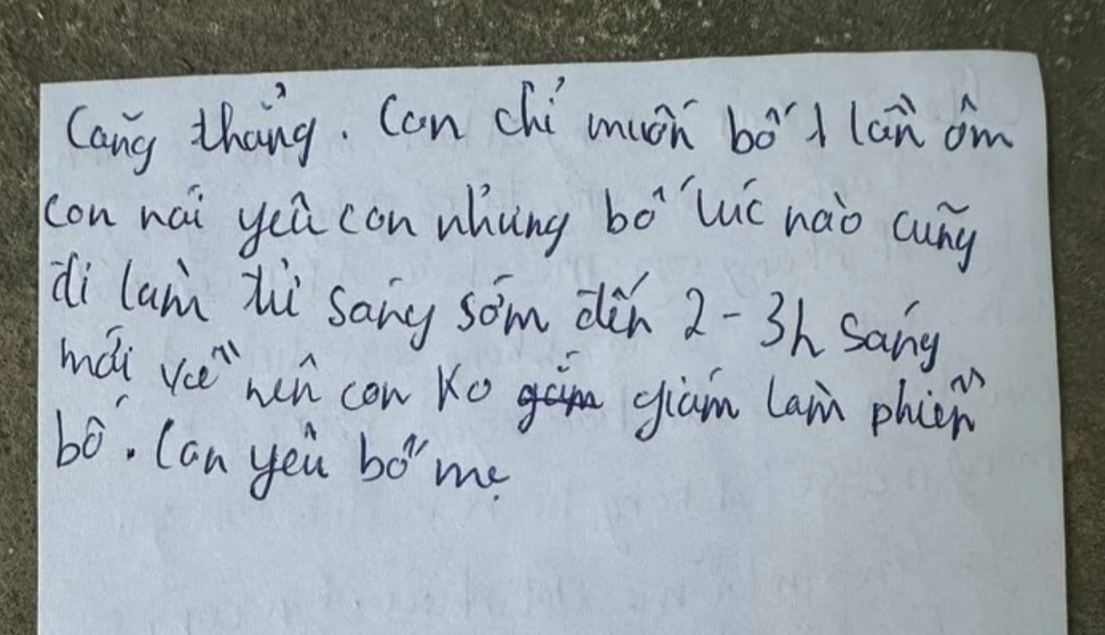 Căng thẳng. Con chỉ muốn bố 1 lần ôm
con nói yêu con nhưng bố lúc nào cũng
đi làm từ sáng sớm đến 2-3h sáng
mới về nên con ko gám giám làm phiền
bố. Con yêu bố mẹ